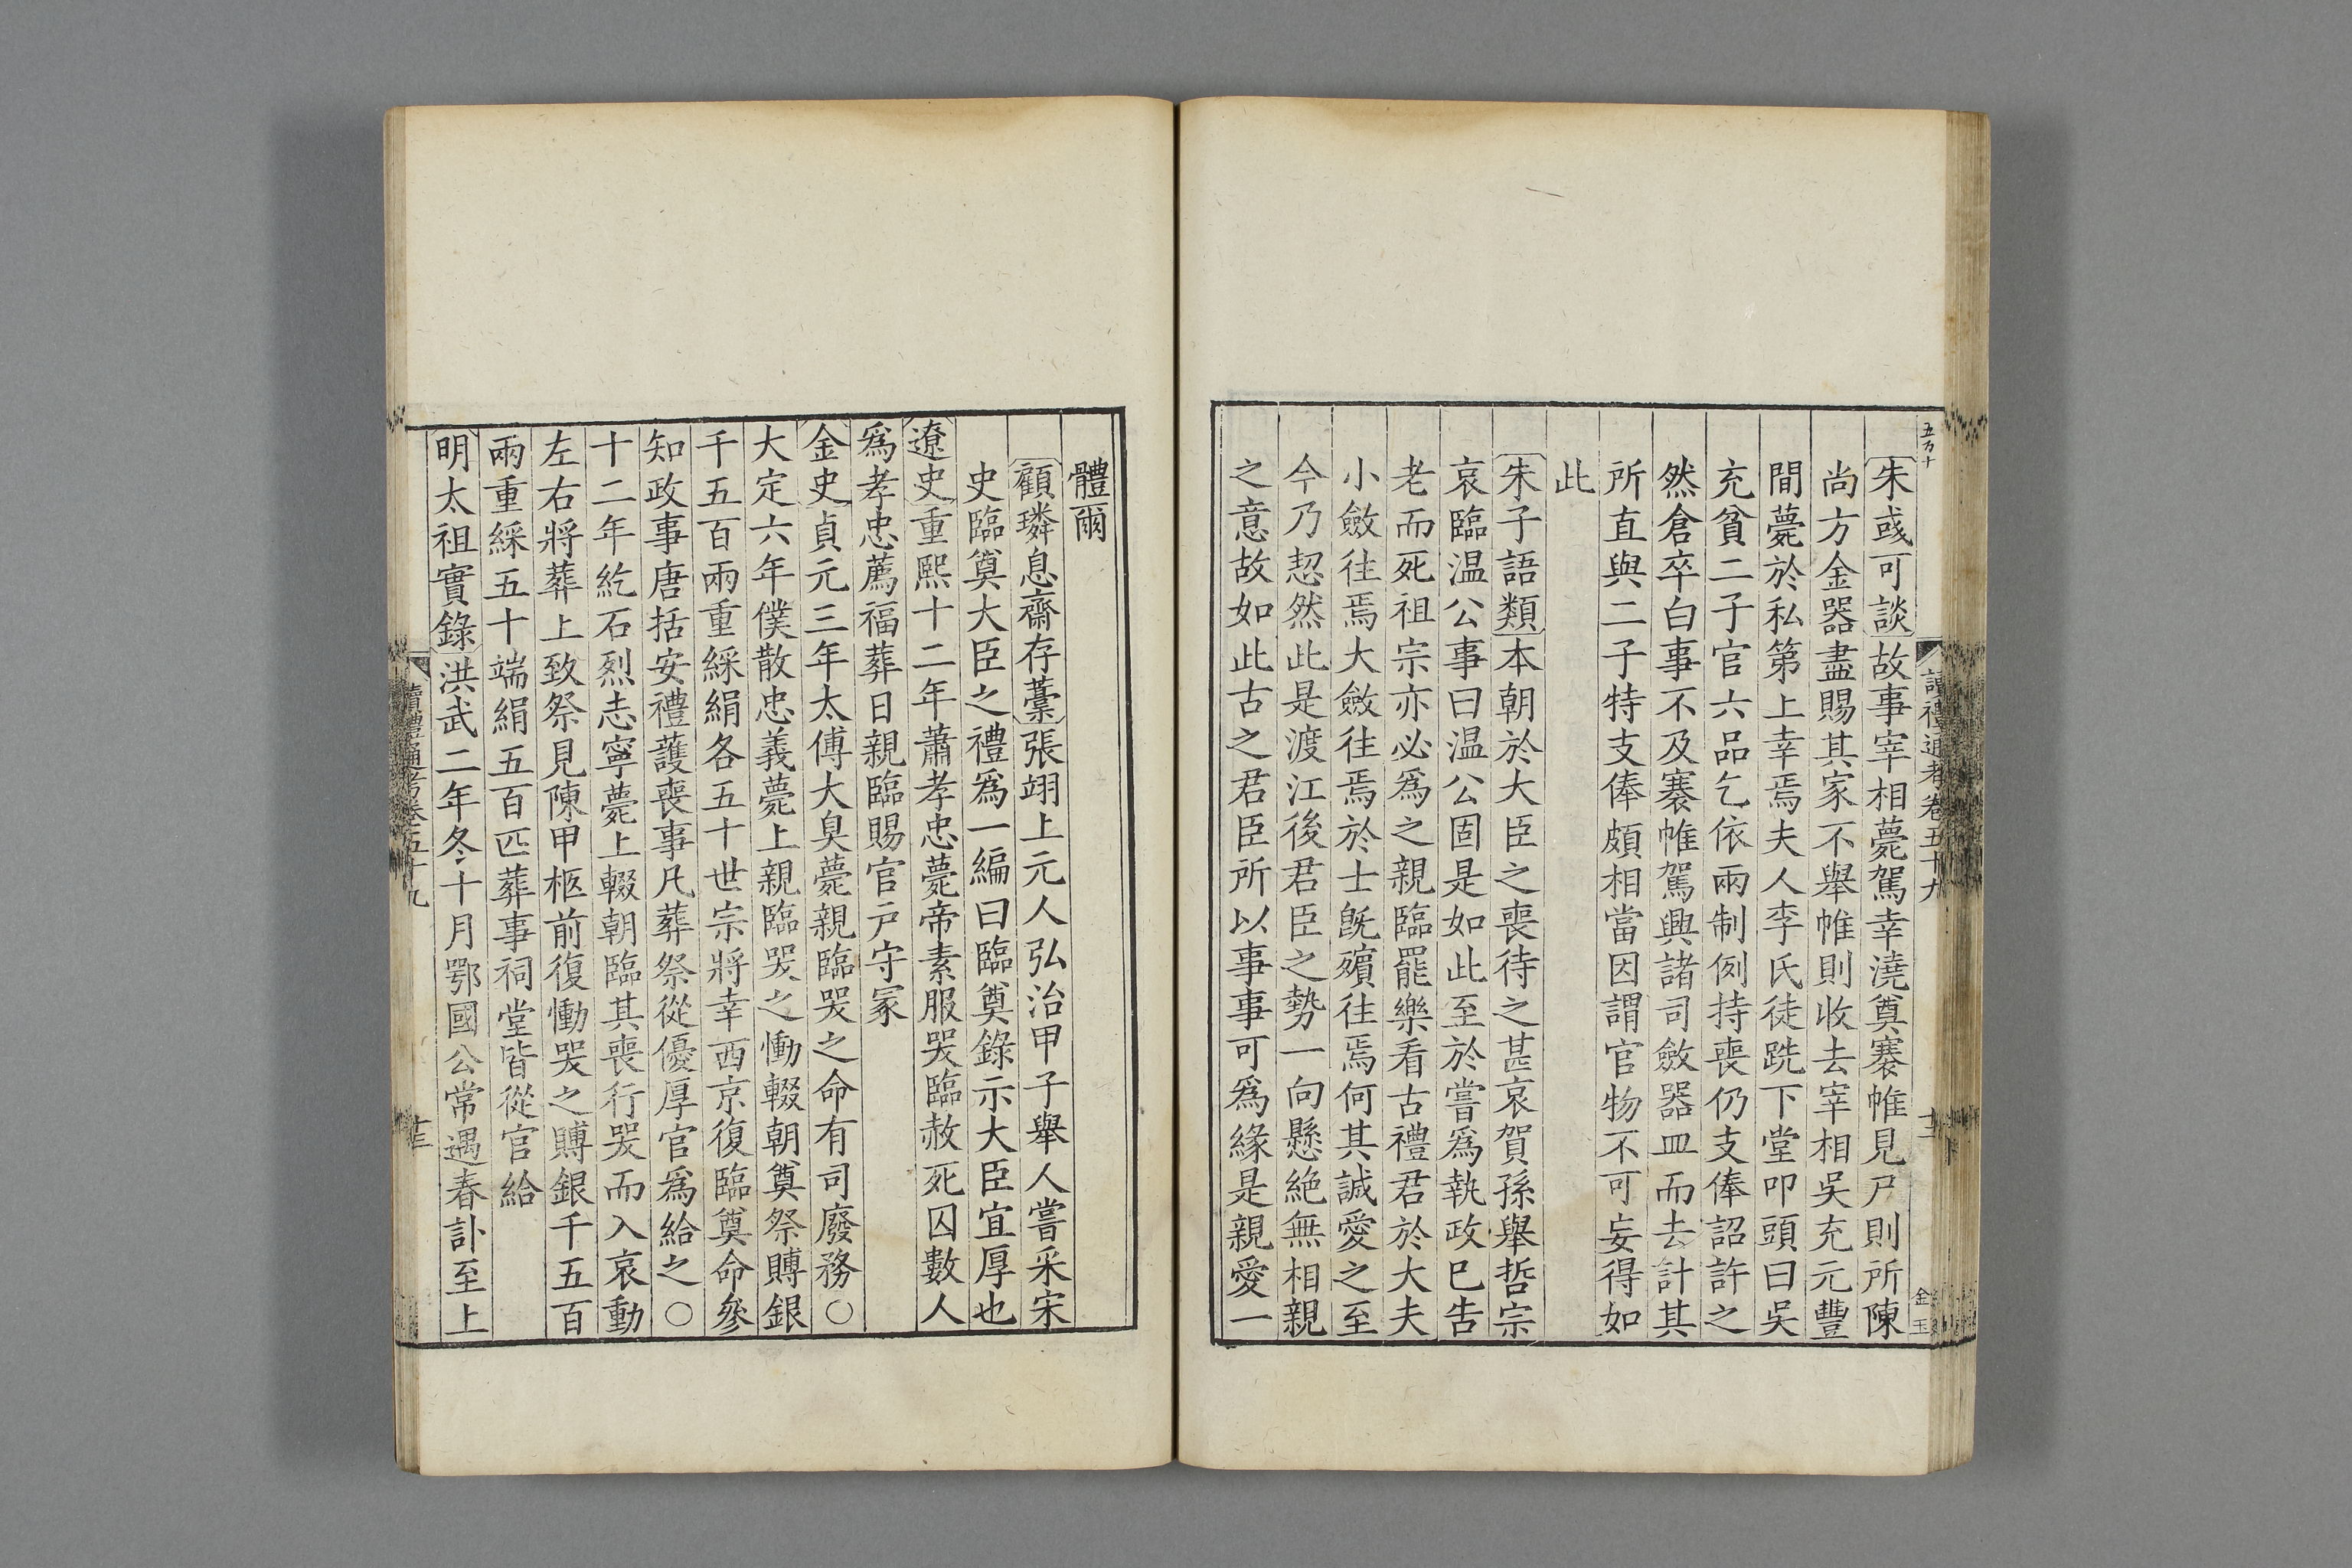 五万十
讀禮通考卷五十九
十二
金玉
朱彧可談故事宰相薨駕幸澆奠褰帷見尸則所陳
尚方金器盡賜其家不舉帷則收去宰相吳充元豐
間薨於私第上幸焉夫人李氏徒跣下堂叩頭曰吳
充貧二子官六品乞依兩制例持喪仍支俸詔許之
然倉卒白事不及褰帷駕興諸司斂器皿而去計其
所直與二子特支俸頗相當因謂官物不可妄得如
此
朱子語類本朝於大臣之喪待之甚哀賀孫舉哲宗
哀臨温公事曰温公固是如此至於嘗爲執政已告
老而死祖宗亦必爲之親臨罷樂看古禮君於大夫
小斂往焉大斂往焉於士旣殯往焉何其誠愛之至
今乃恝然此是渡江後君臣之勢一向懸絶無相親
之意故如此古之君臣所以事事可爲緣是親愛一
體爾
顧璘息齋存藁張翊上元人弘治甲子舉人嘗采宋
史臨奠大臣之禮爲一編曰臨奠錄示大臣宜厚也
遼史重熙十二年蕭孝忠薨帝素服哭臨赦死囚數人
爲孝忠薦福葬日親臨賜官戸守冢
金史貞元三年太傅大㚖薨親臨哭之命有司廢務○
大定六年僕散忠義薨上親臨哭之慟輟朝奠祭賻銀
千五百兩重綵絹各五十世宗將幸西京復臨奠命參
知政事唐括安禮護喪事凡葬祭從優厚官爲給之○
十二年紇石烈志寧薨上輟朝臨其喪行哭而入哀動
左右將葬上致祭見陳甲柩前復慟哭之賻銀千五百
兩重綵五十端絹五百匹葬事祠堂皆從官給
明太祖實錄洪武二年冬十月鄂國公常遇春訃至上
讀禮通考卷五十九
十三